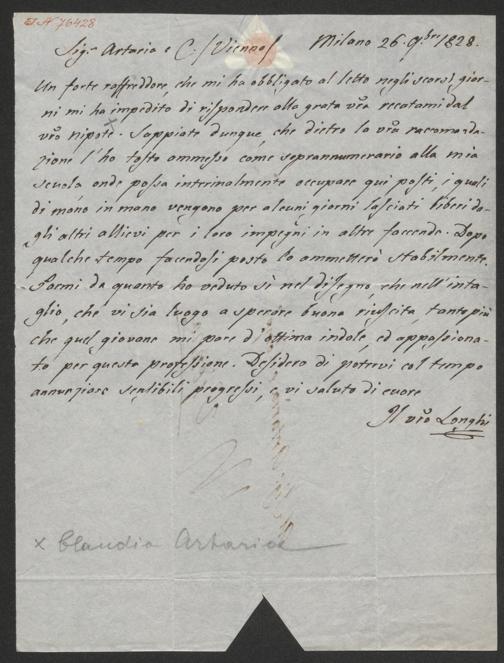 I.N. 76428
Sig.r Artaria e C: /Vienna/ Milano 26. 9bre 1828.
Un forte raffreddore, che mi ha obbligato al letto negli scorsi gior-
ni mi ha impedito di rispondere alla grata vr̃a recatami dal
vr̃o nipote. Sappiate dunque, che dietro la vr̃a raccomanda-
zione l'ho tosto ammesso come soprannumerario alla mia
scuola onde possa interinalmente occupare que' posti, i quali
di mano in mano vengono per alcuni giorni lasciati liberi da-
gli altri allievi per i loro impegni in altre faccende. Dopo
qualche tempo facendosi posto lo ammetterò stabilmente.
Parmi da quanto ho veduto sì nel disegno, che nell'inta-
glio, che vi sia luogo a sperare buona riuscita, tanto più
che quel giovane mi pare d'ottima indole, ed appassiona-
to per questa professione. Desidero di potervi col tempo
annunziare sensibili progressi, e vi saluto di cuore
Il vr̃o Longhi
x Claudio Artaria